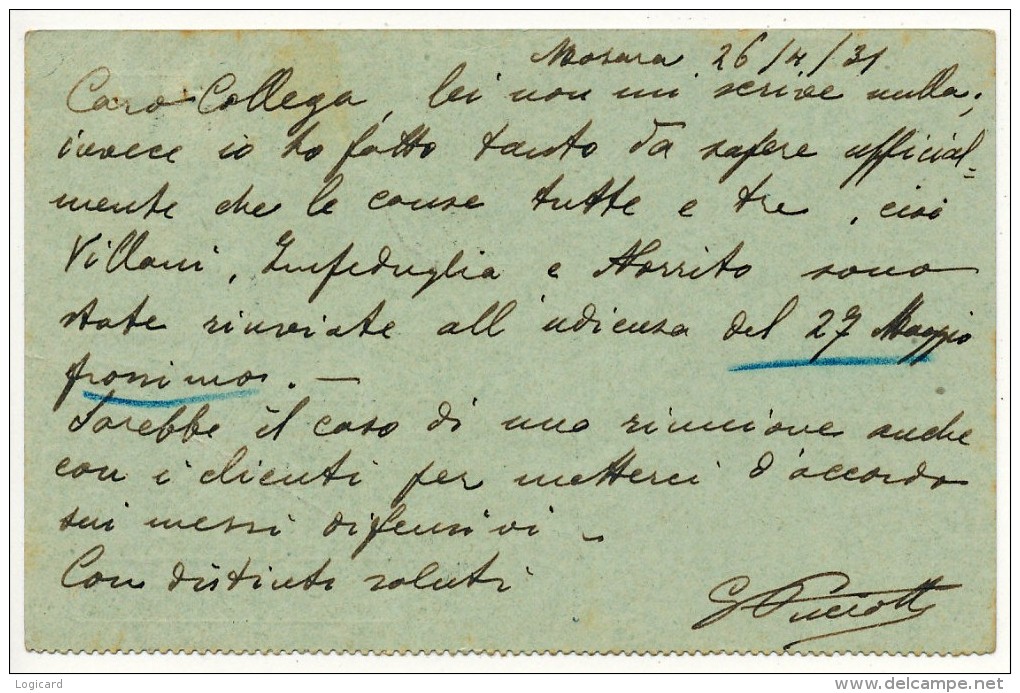 26/4/31
Caro Collega, lei non mi scrive nulla;
invece io ho fatto tanto da sapere official=
mente che le cause tutte e tre, cioè
Villani, Infeduglia e Norrito sono
state rinviate all'udienza del 27 Maggio
prossimo. —
Sarebbe il caso di una riunione anche
con i clienti per metterci d'accordo
sui messi difensivi –
Con distinti saluti
Logicard
www.delcampe.net